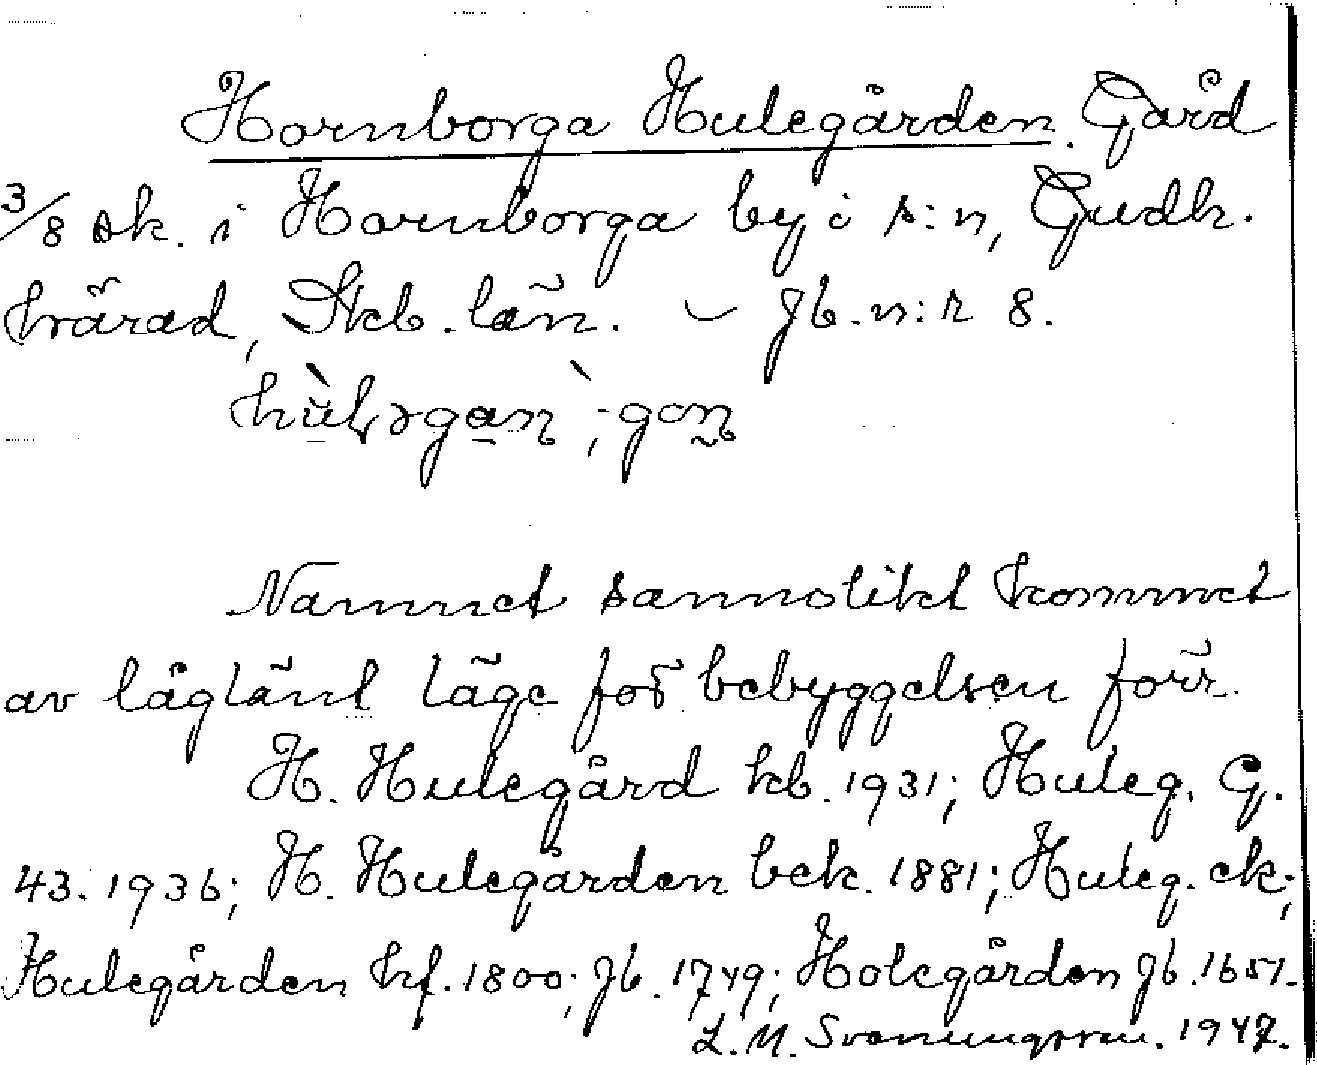 Hornborga Hulegården. Gård
3/8 sk. i Hornborga by i s:n, Gudh.
härad, Skb. län. – Jb. n:r 8.
Namnet sannolikt kommet
av låglänt läge för bebyggelsen förr.
H. Hulegård kb. 1931; Huleg. G.
43. 1936; H. Hulegården bek. 1881; Huleg. ek;
Hulegården hf. 1800; Jb. 1749; Holegården Jb. 1651.
L. M. Svenungsson. 1947.